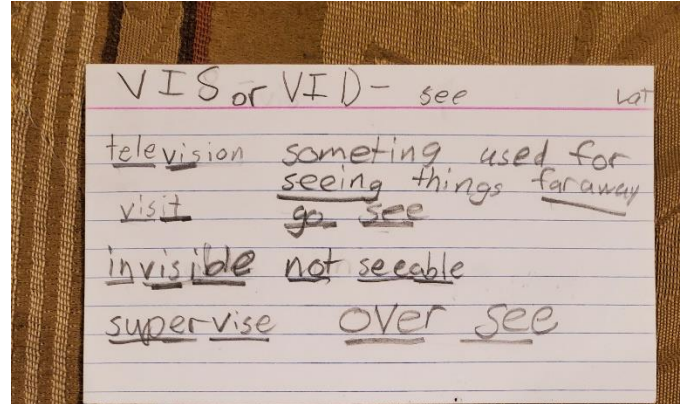 VIS or VID - see Lat
television someting used for
seeing things far away
visit go see
invisible not seeable
supervise over see